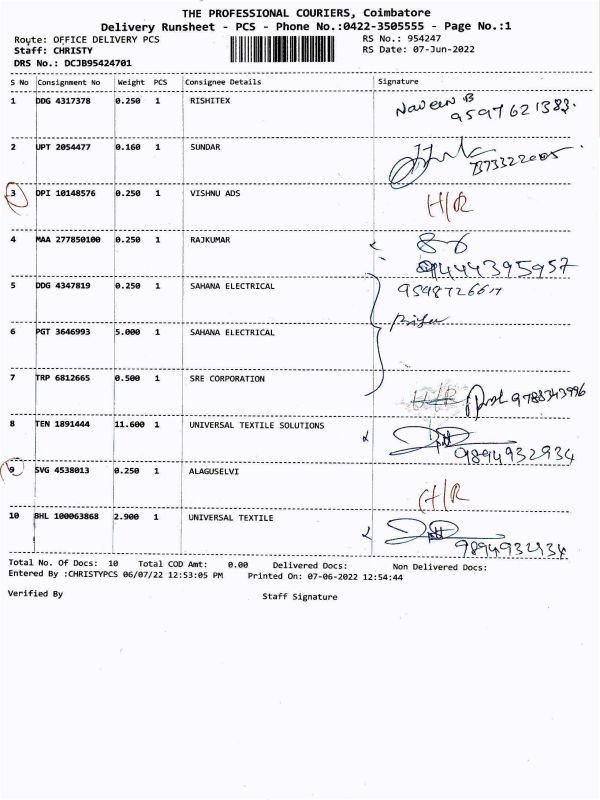 THE PROFESSIONAL COURIERS, Coimbatore
Delivery Runsheet - PCS - Phone No.:0422-3505555 - Page No.:1
Route: OFFICE DELIVERY PCS RS No.: 954247
Staff: CHRISTY RS Date: 07-Jun-2022
DRS No.: DCJB95424701
S No Consignment No Weight PCS Consignee Details Signature
1 DDG 4317378 0.250 1 RISHITEX Naveen B
9597621383.
2 UPT 2054477 0.160 1 SUNDAR
3 DPI 10148576 0.250 1 VISHNU ADS H/R
4 MAA 277850100 0.250 1 RAJKUMAR
9444395957
5 DDG 4347819 0.250 1 SAHANA ELECTRICAL
6 PGT 3646993 5.000 1 SAHANA ELECTRICAL
7 TRP 6812665 0.500 1 SRE CORPORATION H/R 9788343996
8 TEN 1891444 11.600 1 UNIVERSAL TEXTILE SOLUTIONS
9894932934
9 SVG 4538013 0.250 1 ALAGUSELVI
H/R
10 BHL 100063868 2.900 1 UNIVERSAL TEXTILE
9894932934
Total No. Of Docs: 10 Total COD Amt: 0.00 Delivered Docs: Non Delivered Docs:
Entered By :CHRISTYPCS 06/07/22 12:53:05 PM Printed On: 07-06-2022 12:54:44
Verified By Staff Signature